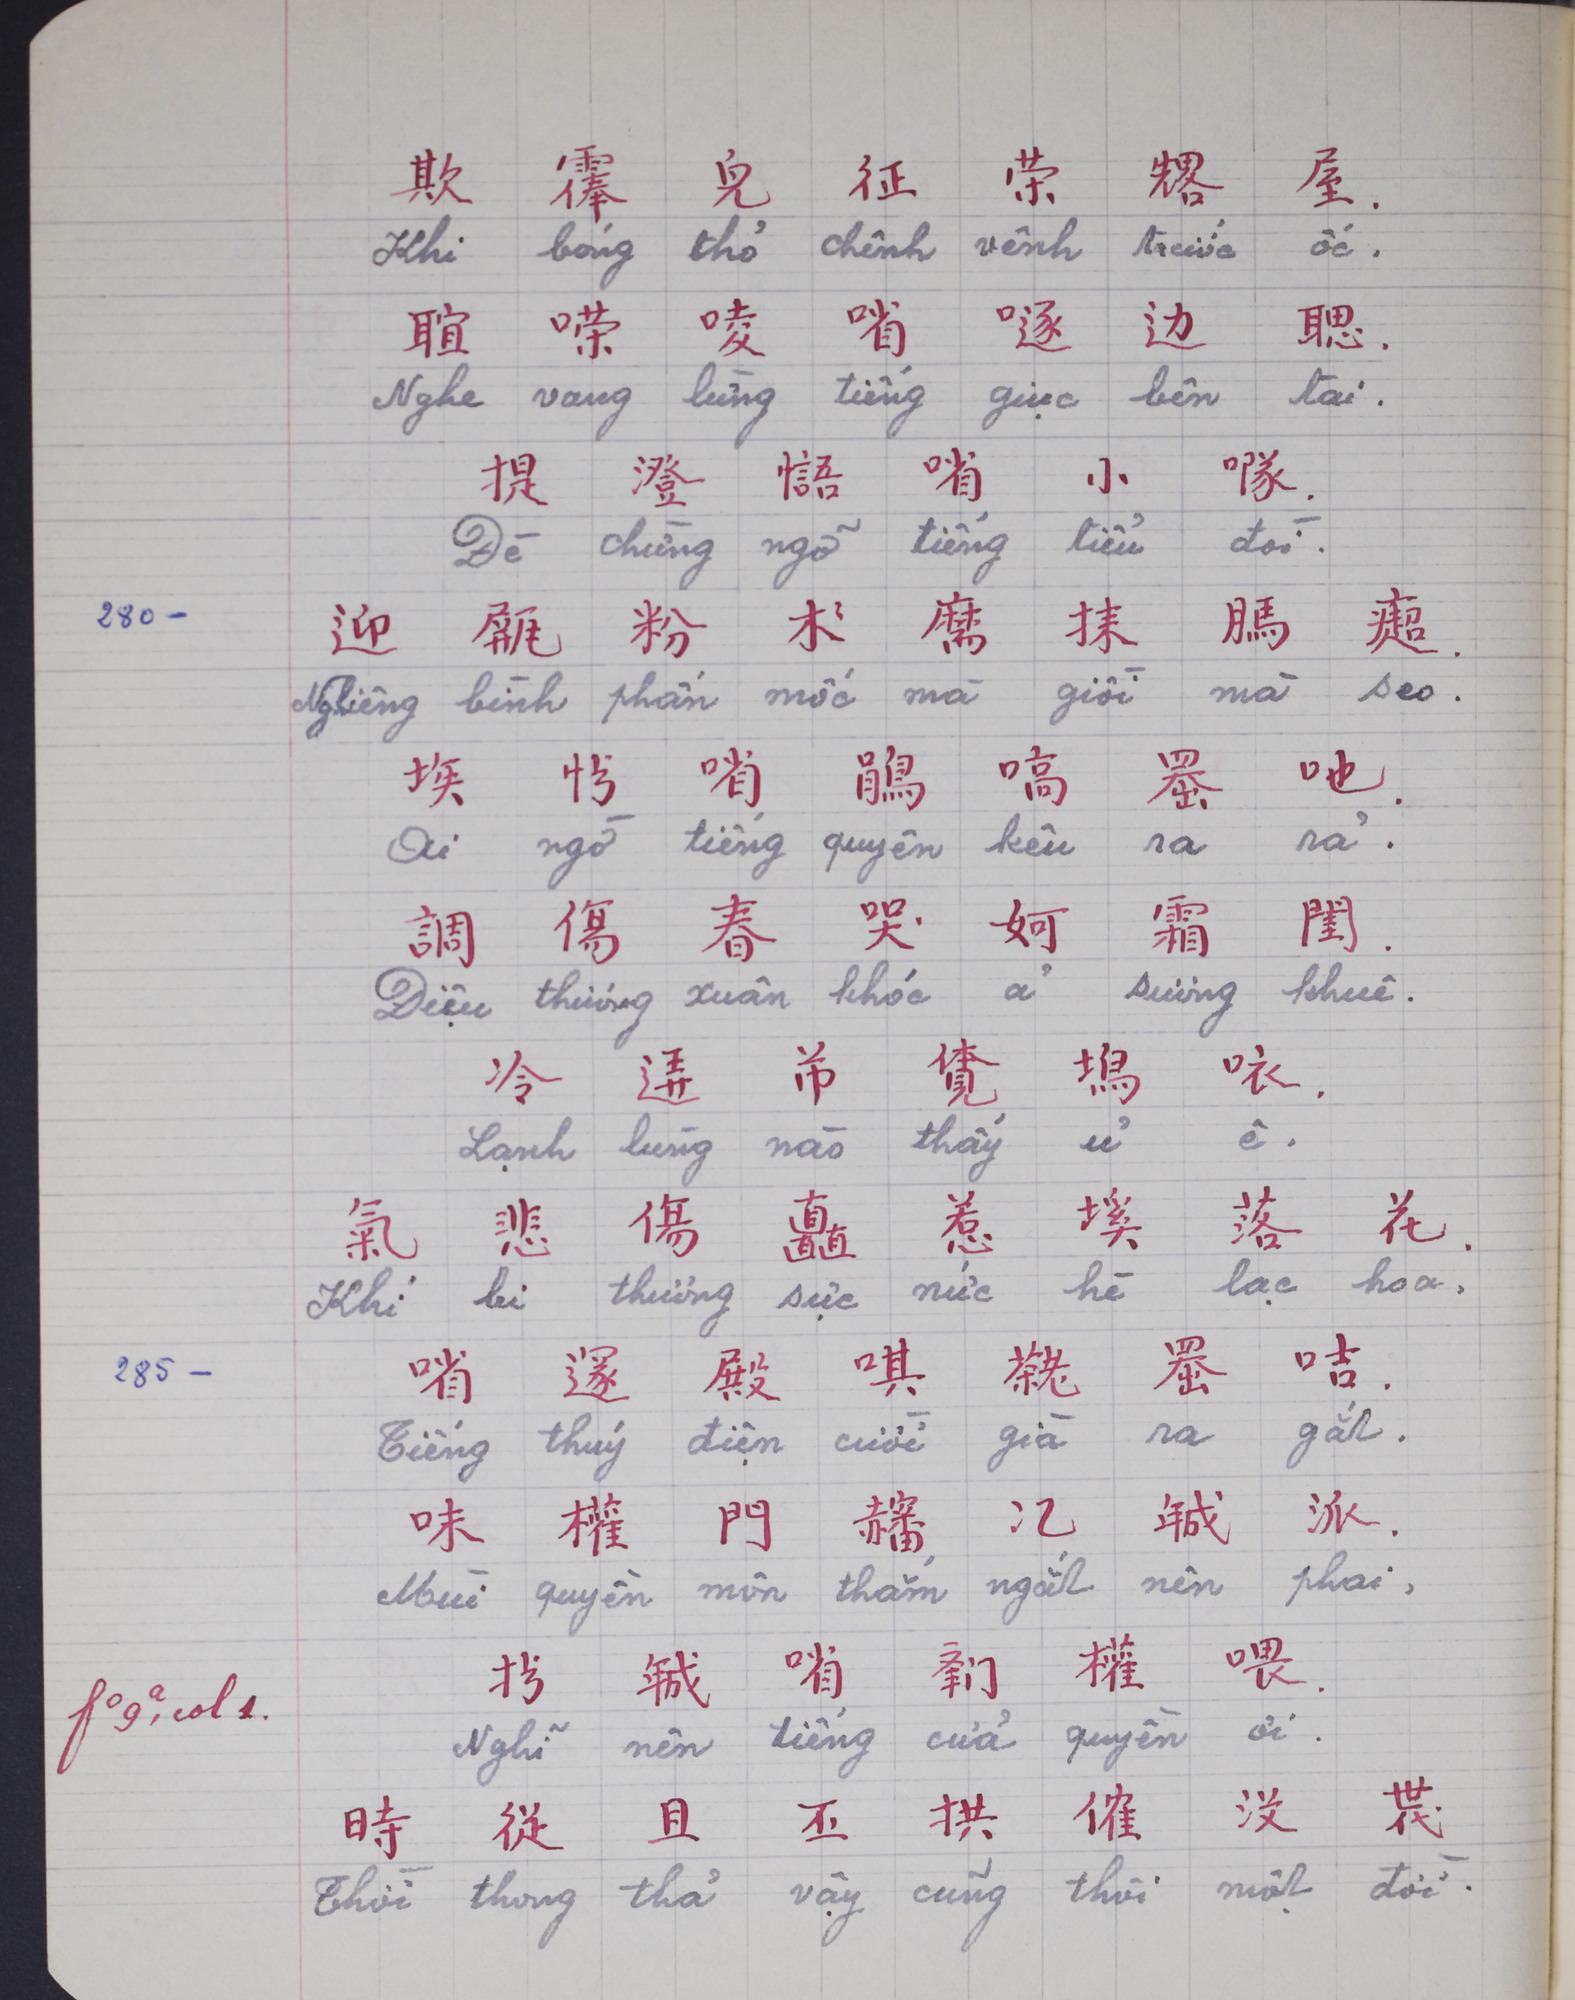 欺 𩃳 兒 征 荣 𠠩 屋.
Khi bóng thỏ chênh vênh trước ốc.
𦖻 嘮 唛 㗂 𠴓 边 聰.
Nghe vang lừng tiếng giục bên tai.
提 澄 悟 㗂 小 隊.
Đè chừng ngỡ tiếng tiểu đòi.
280 –
迎 瓶 粉 朩 麻 抹 𦟐 𤺔.
Nghiêng bình phấn mốc mà giồi mà seo.
埃 㤕 㗂 鵑 嗃 𦋦 吔.
Ai ngờ tiếng quyên kêu ra rả.
調 傷 春 哭 妸 霜 閨.
Điệu thương xuân khóc ả sương khuê.
冷 逬 芇 𧡊 塢 𠲖.
Lạnh lùng nào thấy ủ ê.
氣 悲 傷 矗 惹 㙨 落 花.
Khí bi thương sực nức hè lạc hoa.
285 –
㗂 邃 殿 唭 𦓅 𦋦 咭.
Tiếng thúy điện cười già ra gắt.
味 權 門 𧺀 㲸 𢧚 派.
Mùi quyền môn thắm ngắt nên phai.
f° 9ª, col 1.
𢪀 𢧚 㗂 𨷯 權 喂.
Nghĩ nên tiếng cửa quyền ơi.
時 從 且 丕 拱 傕 没 𠁀
Thời thong thả vậy cũng thôi một đời.